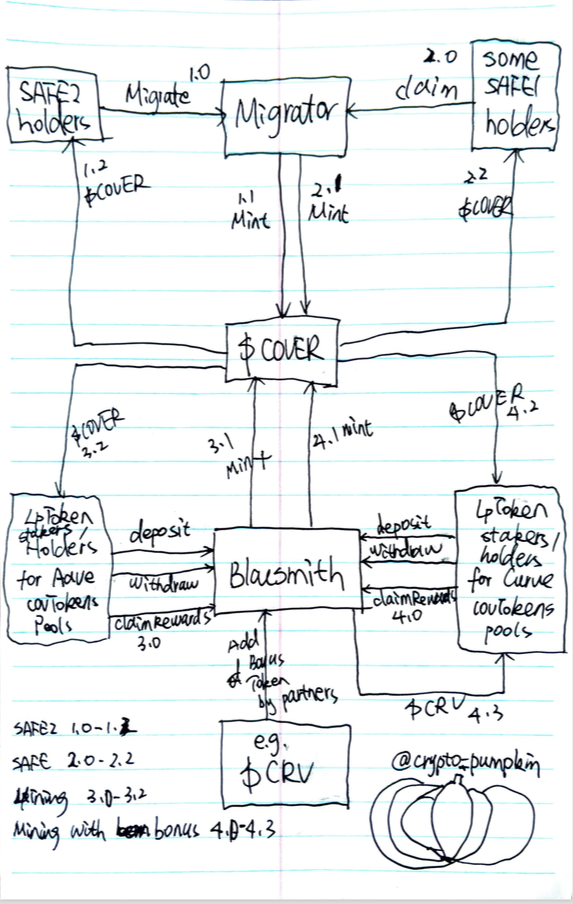 SAFE2
holders
1.0
Migrate
Migrator
2.0
claim
some
SAFE1
holders
1.2
$COVER
1.1
Mint
2.1
Mint
2.2
$COVER
$COVER
$COVER
3.2
3.1
Mint
4.1 mint
$COVER
4.2
LpToken
stakers/
Holders
for Aave
covTokens
Pools
deposit
withdraw
claimRewards
3.0
Blacsmith
deposit
withdraw
claimRewards
4.0
LpToken
stakers/
holders
for Curve
covTokens
pools
Add
Bonus
Token
by partners
$CRV 4.3
e.g.
$CRV
SAFE2 1.0-1.2
SAFE 2.0-2.2
Mining 3.0-3.2
Mining with bonus 4.0-4.3
@crypto_pumpkin